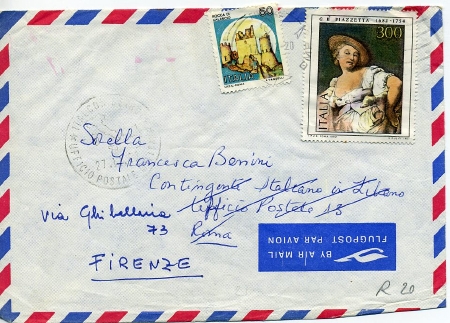 ROCCA DI
50
ITALIA
G. B. PIAZZETTA 1682-1754
300
ITALIA
UFFICIO POSTALE
27.
Sorella
Francesca Benini
Contingente Italiano in Libano
Ufficio Postale 13
Roma
via Ghibellina
73
FIRENZE
BY AIR MAIL
FLUGPOST · PAR AVION
R 20